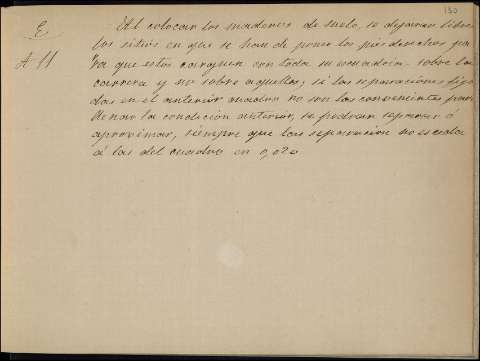 130
E
A 11
Al colocar los maderos de suelo, se dejaran libres
los sitios en que se han de poner los pies derechos pa-
ra que estos carguen con toda su escuadria sobre la
carrera y no sobre aquellos; si las separaciones fija-
das en el anterior cuadro no son las convenientes para
llenar la condicion anterior, se podran separar ó
aproximar, siempre que la separacion no esceda
á las del cuadro en 0,020